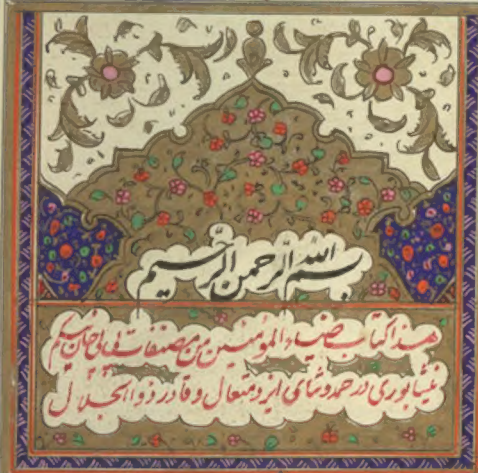 بسم الله الرحمن الرحیم
هذا کتاب ضیاء المؤمنین من مصنفات حکیم
نیشابوری در حمد و ثنای ایزد متعال و قادر ذو الجلال